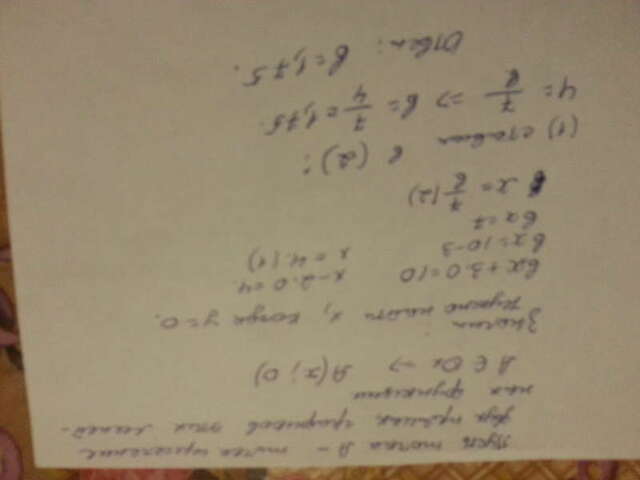 Пусть точка A – точка пересечение
двух прямых, графиков этих линей-
ных функции
A ∈ Ox => A(x; 0)
Значит
нужно найти x, когда y=0.
bx+3·0=10 x-2·0=4
bx=10-3 x=4 (1)
bx=7
x=7/b (2)
(1) ставим в (2):
4=7/b => b=7/4=1,75.
Ответ: b=1,75.